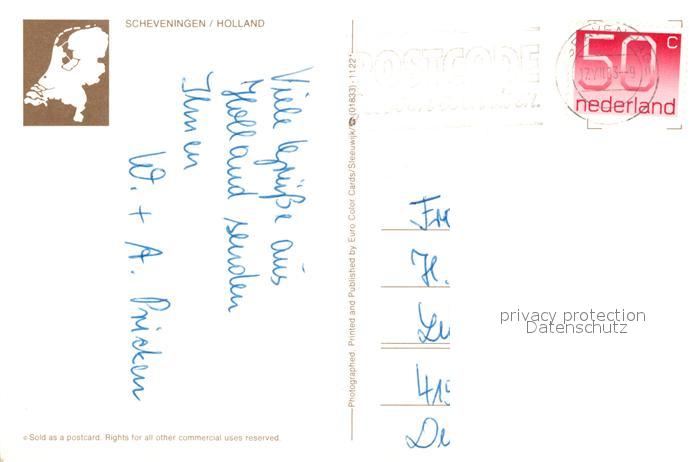 SCHEVENINGEN / HOLLAND
Viele Grüße aus
Holland senden
Ihnen
W. + A. Pricken
© Sold as a postcard. Rights for all other commercial uses reserved.
Photographed, Printed and Published by Euro Color Cards/Sleeuwijk/☎ (01833) - 1122
POSTCODE
50 c
nederland
H.
415
privacy protection
Datenschutz